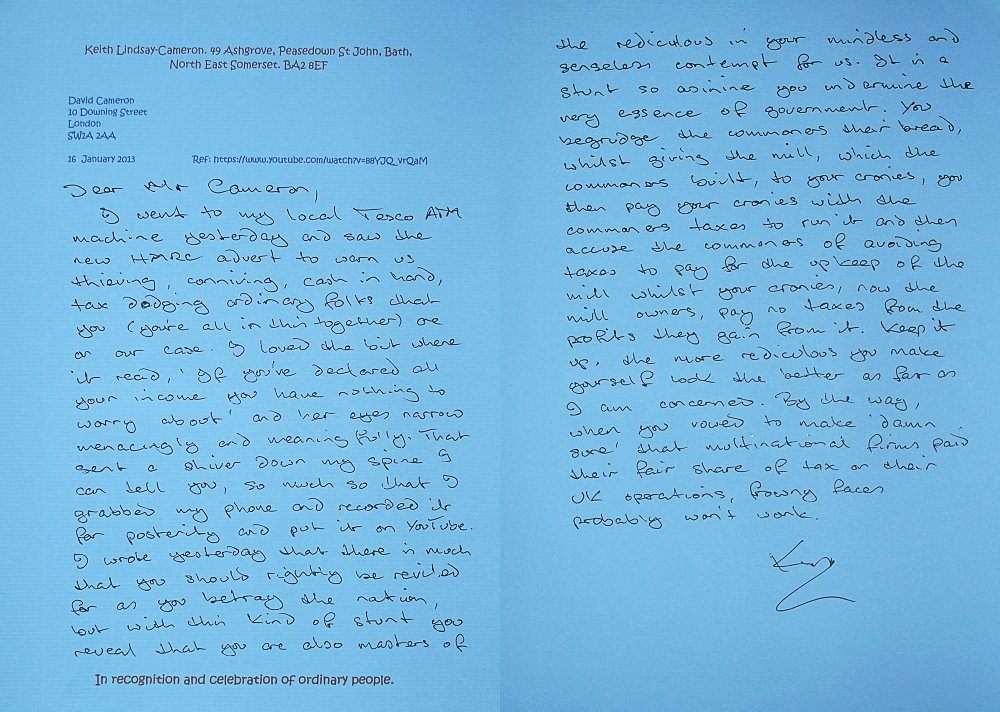 Keith Lindsay-Cameron. 49 Ashgrove, Peasedown St John, Bath,
North East Somerset. BA2 8EF
David Cameron
10 Downing Street
London
SW1A 2AA
26 January 2013 Ref: https://www.youtube.com/watch?v=88YJQ_vrQaM
Dear Mr Cameron,
I went to my local Tesco ATM
machine yesterday and saw the
new HMRC advert to warn us
thieving, conniving, cash in hand,
tax dodging ordinary folks that
you (you're all in this together) are
on our case. I loved the bit where
it read, 'If you've declared all
your income you have nothing to
worry about' and her eyes narrow
menacingly and meaningfully. That
sent a shiver down my spine I
can tell you, so much so that I
grabbed my phone and recorded it
for posterity and put it on YouTube.
I wrote yesterday that there is much
that you should rightly be reviled
for as you betray the nation,
but with this kind of stunt you
reveal that you are also masters of
In recognition and celebration of ordinary people.
the rediculous in your mindless and
senseless contempt for us. It is a
stunt so asinine you undermine the
very essence of government. You
begrudge the commoners their bread,
whilst giving the mill, which the
commoners built, to your cronies, you
then pay your cronies with the
commoners taxes to run it and then
accuse the commoners of avoiding
taxes to pay for the upkeep of the
mill whilst your cronies, now the
mill owners, pay no taxes from the
profits they gain from it. Keep it
up, the more rediculous you make
yourself look the better as far as
I am concerned. By the way,
when you vowed to make 'damn
sure' that multinational firms paid
their fair share of tax on their
UK operations, frowny faces
probably won't work.